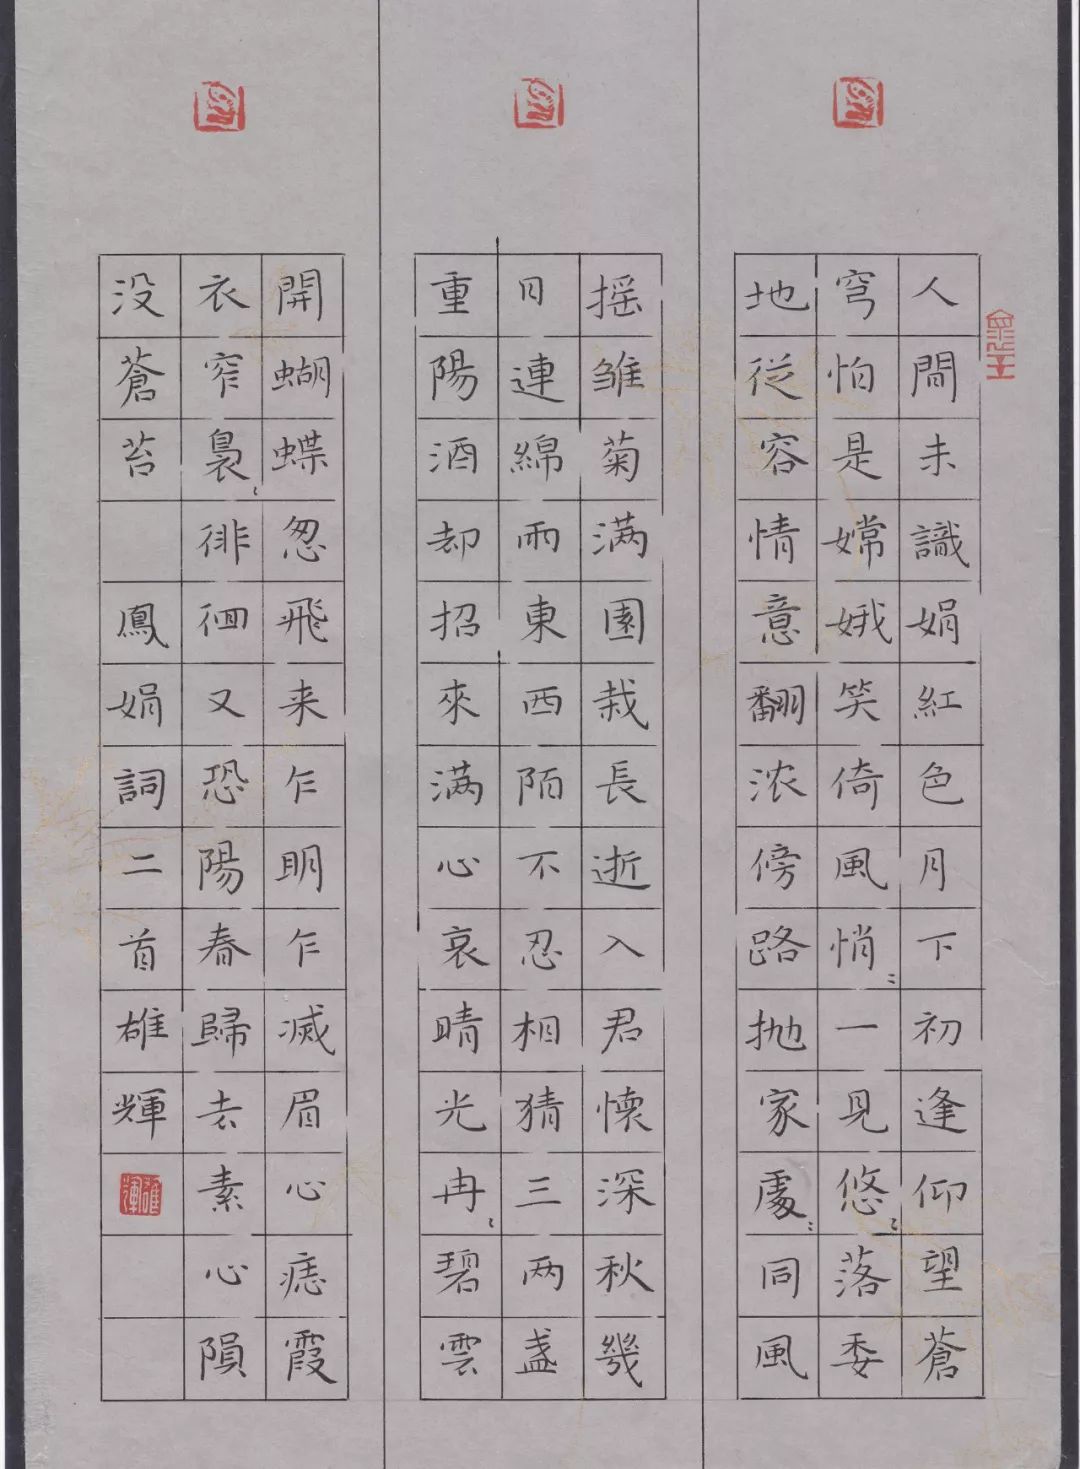 人間未識娟紅色月下初逢仰望蒼
穹怕是嫦娥笑倚風悄〻一見悠〻落委
地從容情意翻浓傍路抛家處〻同風
摇雏菊满園栽長逝入君懷深秋幾
日連綿雨東西陌不忍相猜三两盏
重陽酒却招來满心哀晴光冉〻碧雲
開蝴蝶忽飛来乍明乍滅眉心痣霞
衣窄裊〻徘徊又恐陽春歸去素心隕
没蒼苔 鳳娟詞二首雄輝
雄輝